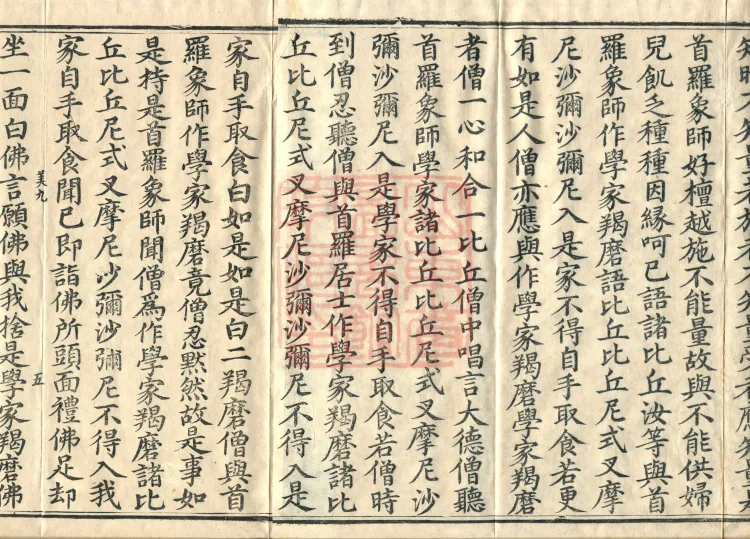 首羅象師好檀越施不能量故與不能供婦
兒飢乏種種因緣呵已語諸比丘汝等與首
羅象師作學家羯磨語比丘比丘尼式叉摩
尼沙彌沙彌尼入是家不得自手取食若更
有如是人僧亦應與作學家羯磨學家羯磨
者僧一心和合一比丘僧中唱言大德僧聽
首羅象師學家諸比丘比丘尼式叉摩尼沙
彌沙彌尼入是學家不得自手取食若僧時
到僧忍聽僧與首羅居士作學家羯磨諸比
丘比丘尼式叉摩尼沙彌沙彌尼不得入是
家自手取食白如是如是白二羯磨僧與首
羅象師作學家羯磨竟僧忍默然故是事如
是持是首羅象師聞僧爲作學家羯磨諸比
丘比丘尼式叉摩尼沙彌沙彌尼不得入我
家自手取食聞已即詣佛所頭面禮佛足却
五
坐一面白佛言願佛與我捨是學家羯磨佛